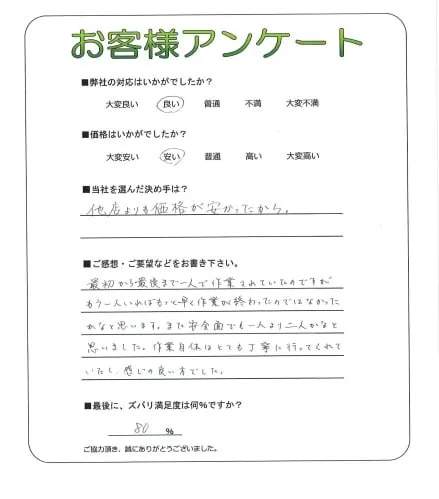 お客様アンケート
■弊社の対応はいかがでしたか?
大変良い 良い 普通 不満 大変不満
■価格はいかがでしたか?
大変安い 安い 普通 高い 大変高い
■当社を選んだ決め手は?
他店よりも価格が安かったから。
■ご感想・ご要望などをお書き下さい。
最初から最後まで一人で作業されていたのですが
もう一人いればもっと早く作業が終わったのではなかった
かなと思います。また安全面でも一人より二人かなと
思いました。作業自体はとても丁寧に行ってくれて
いたし、感じの良い方でした。
■最後に、ズバリ満足度は何%ですか?
80 %
ご協力頂き、誠にありがとうございました。